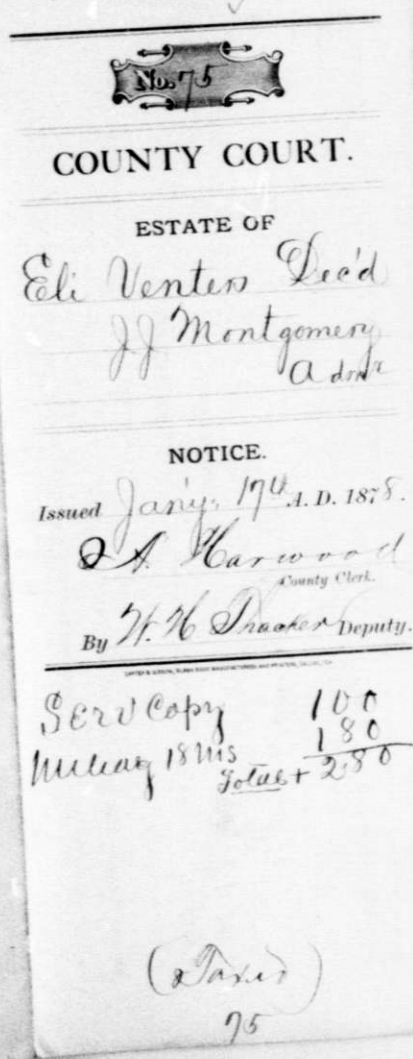 No. 75
COUNTY COURT.
ESTATE OF
Eli Venters Dec'd
JJ Montgomery
Admr
NOTICE.
Issued Jan'y. 17th A. D. 1878.
A Harwood
County Clerk.
By W. H Thacker Deputy.
Serv Copy 100
Mileag 18 Ms 180
Total + 280
75